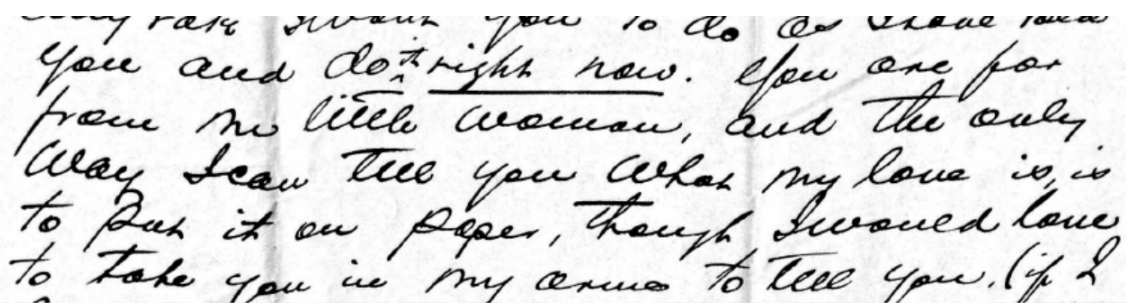 rate I want you to do as I have told
you and do it right now. You are far
from me little woman, and the only
way I can tell you what my love is, is
to put it on paper, though I would love
to take you in my arms to tell you. (if I